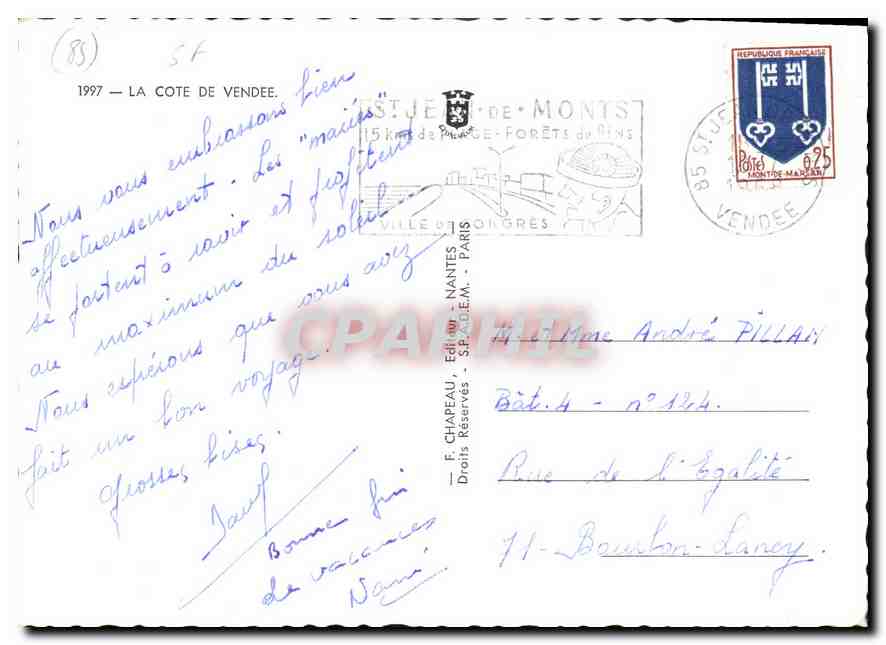 (85)
5F
1997 — LA COTE DE VENDEE.
ST JEAN-DE-MONTS
15 kms de PLAGE-FORÊTS de PINS
VILLE DE CONGRES
85 ST JE
VENDEE
REPUBLIQUE FRANÇAISE
POSTES 0,25
MONT-DE-MARSAN
Nous vous embrassons bien
affectueusement. Les "
se portent à ravir et profitent
au maximum du soleil
Nous espérons que vous avez
fait un bon voyage.
Grosses bises.
Bonne fin
de vacances
— F. CHAPEAU, Editeur - NANTES —
Droits Réservés - S.P.A.D.E.M. - PARIS
CPAPHIL
M. et Mme André PILLAN
Bât. 4 - n° 124.
Rue de l'Egalité
71 - Bourbon-Lancy.